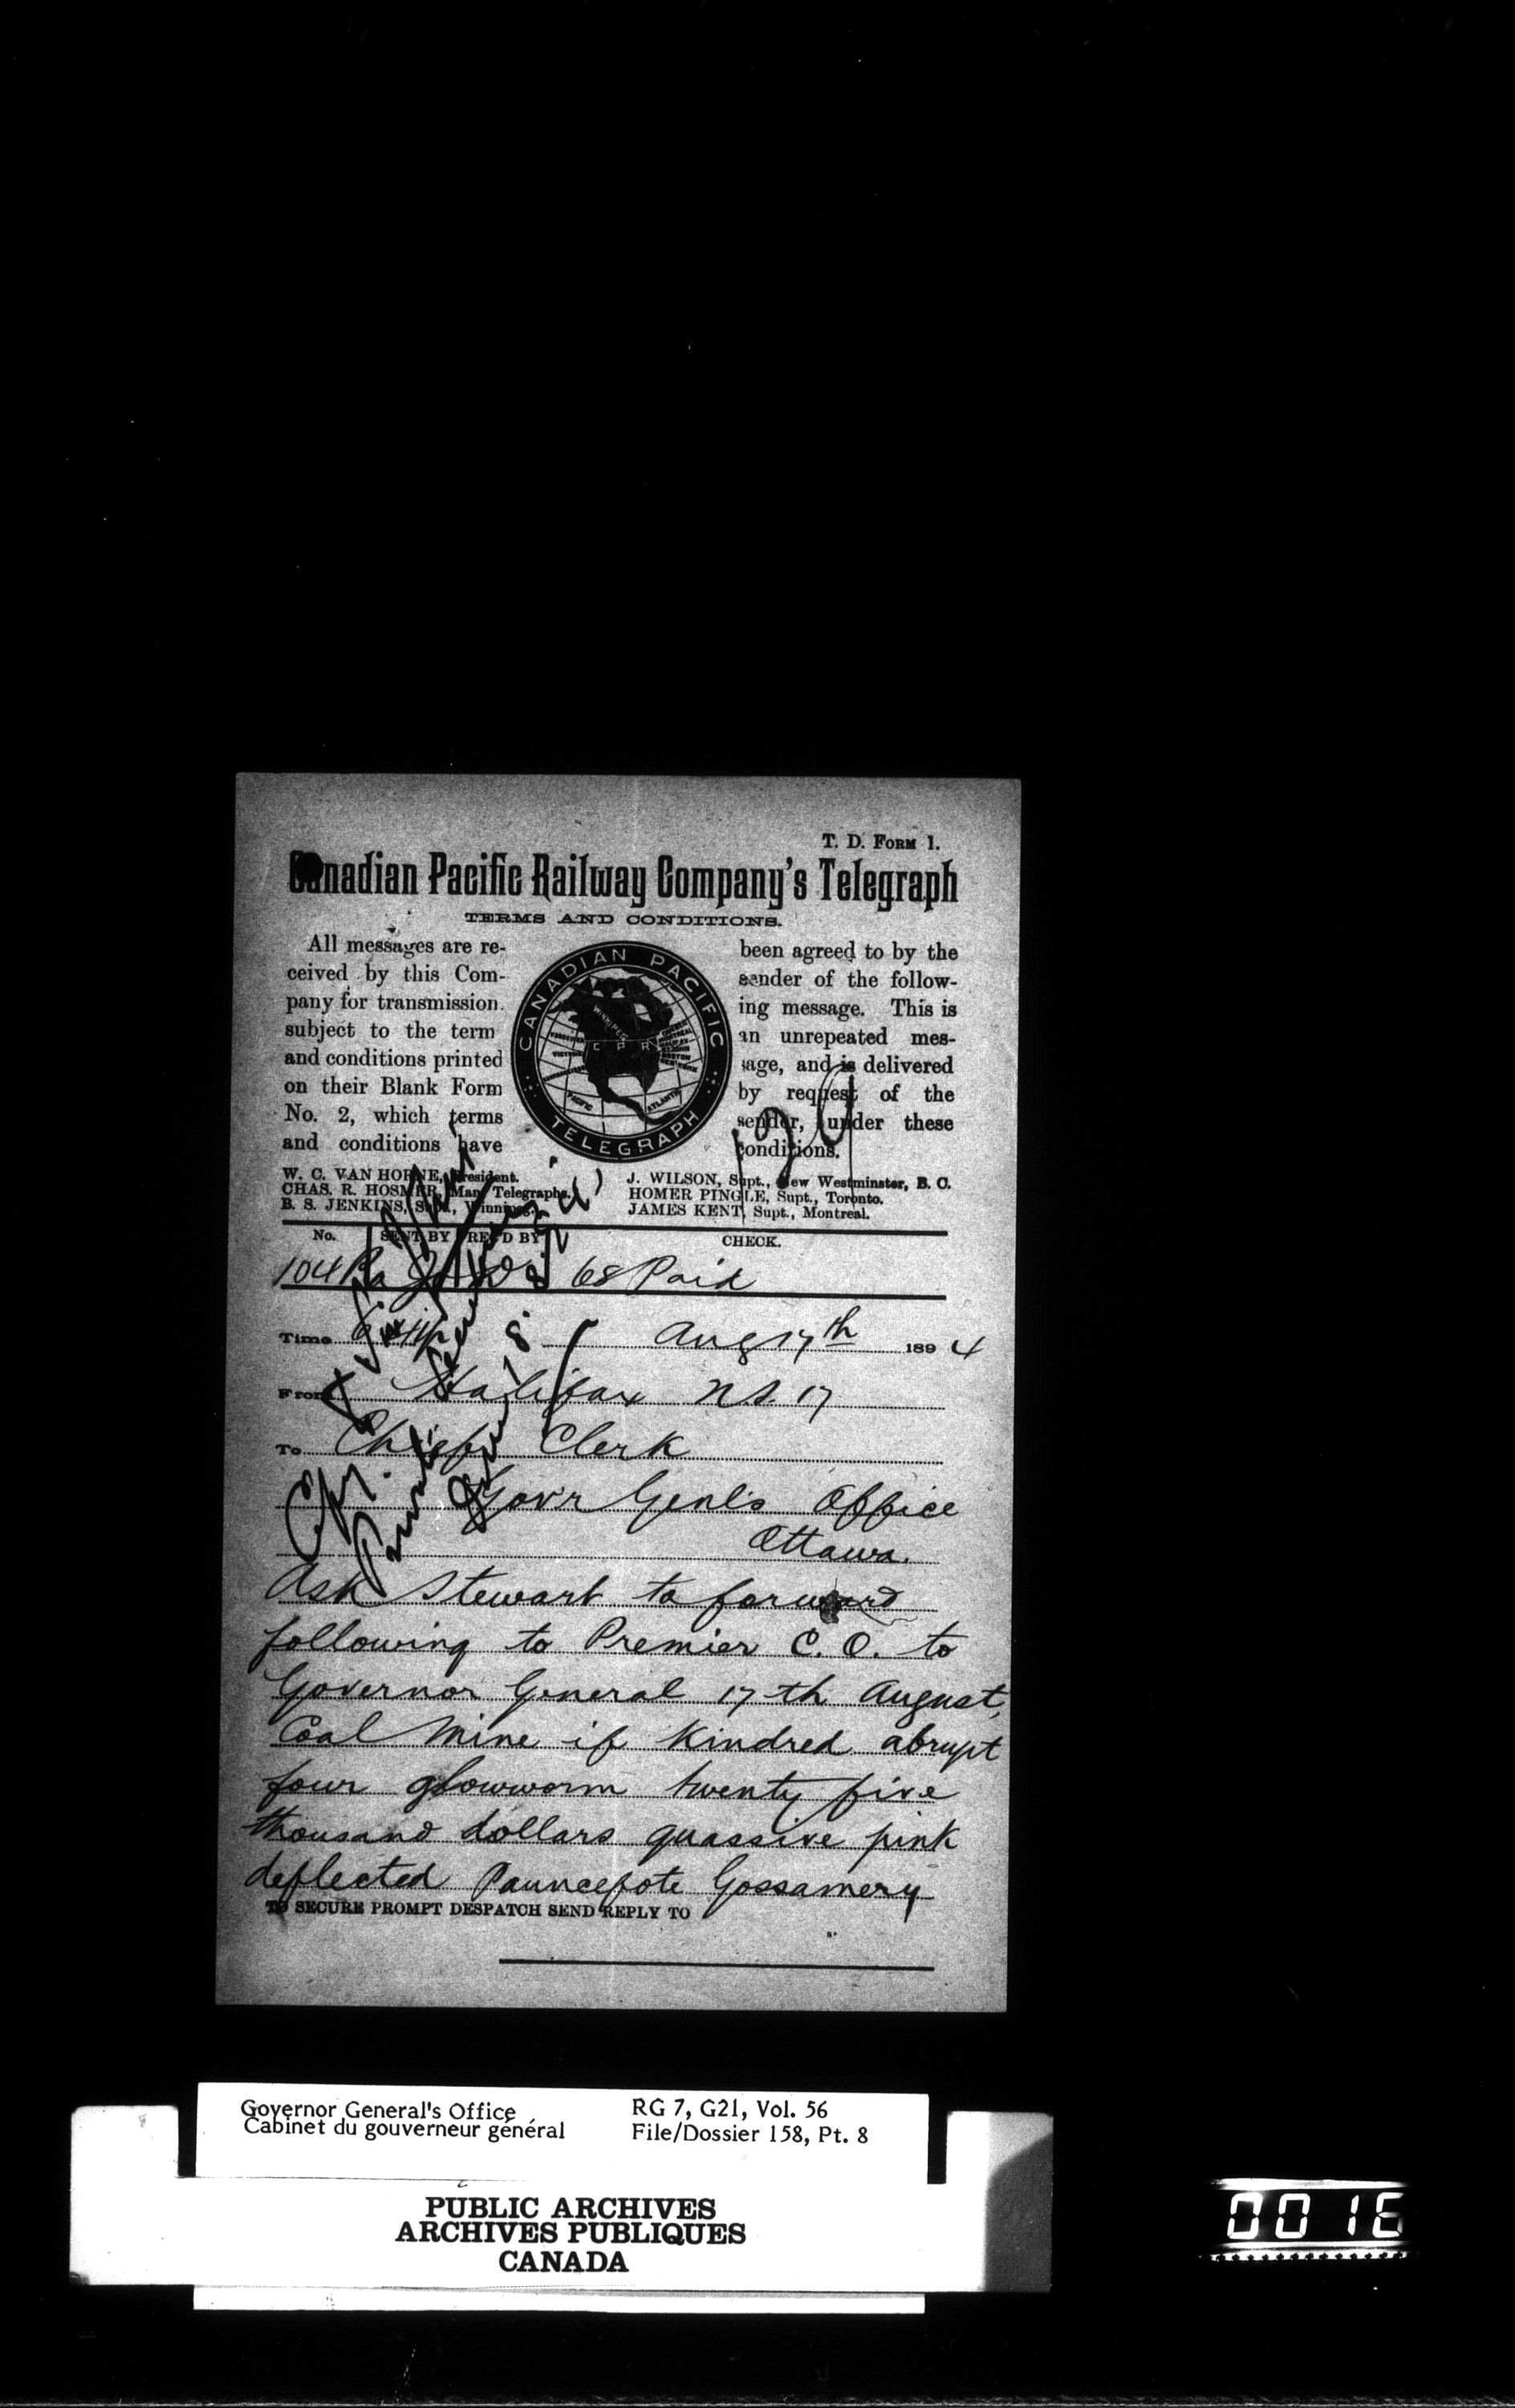 T. D. FORM 1.
Canadian Pacific Railway Company's Telegraph
TERMS AND CONDITIONS.
All messages are re-
ceived by this Com-
pany for transmission
subject to the term
and conditions printed
on their Blank Form
No. 2, which terms
and conditions have
CANADIAN PACIFIC
WINNIPEG
C P R
PACIFIC
ATLANTIC
TELEGRAPH
been agreed to by the
sender of the follow-
ing message. This is
an unrepeated mes-
sage, and is delivered
by request of the
sender, under these
conditions.
129
W. C. VAN HORNE, President.
CHAS. R. HOSMER, Man. Telegraphs.
B. S. JENKINS, Supt., Winnipeg.
J. WILSON, Supt., New Westminster, B. C.
HOMER PINGLE, Supt., Toronto.
JAMES KENT, Supt., Montreal.
No. SENT BY REC'D BY CHECK.
104 Ra 68 Paid
Time Aug 17th 1894
From Halifax N.S. 17
To Chief Clerk
Gov'r Genl's Office
Ottawa.
Ask Stewart to forward
following to Premier C. O. to
Governor General 17th August,
Coal Mine if Kindred abrupt
four glowworm twenty five
thousand dollars quassive pink
deflected Pauncefote Gossamery
TO SECURE PROMPT DESPATCH SEND REPLY TO
Governor General's Office
Cabinet du gouverneur général
RG 7, G21, Vol. 56
File/Dossier 158, Pt. 8
PUBLIC ARCHIVES
ARCHIVES PUBLIQUES
CANADA